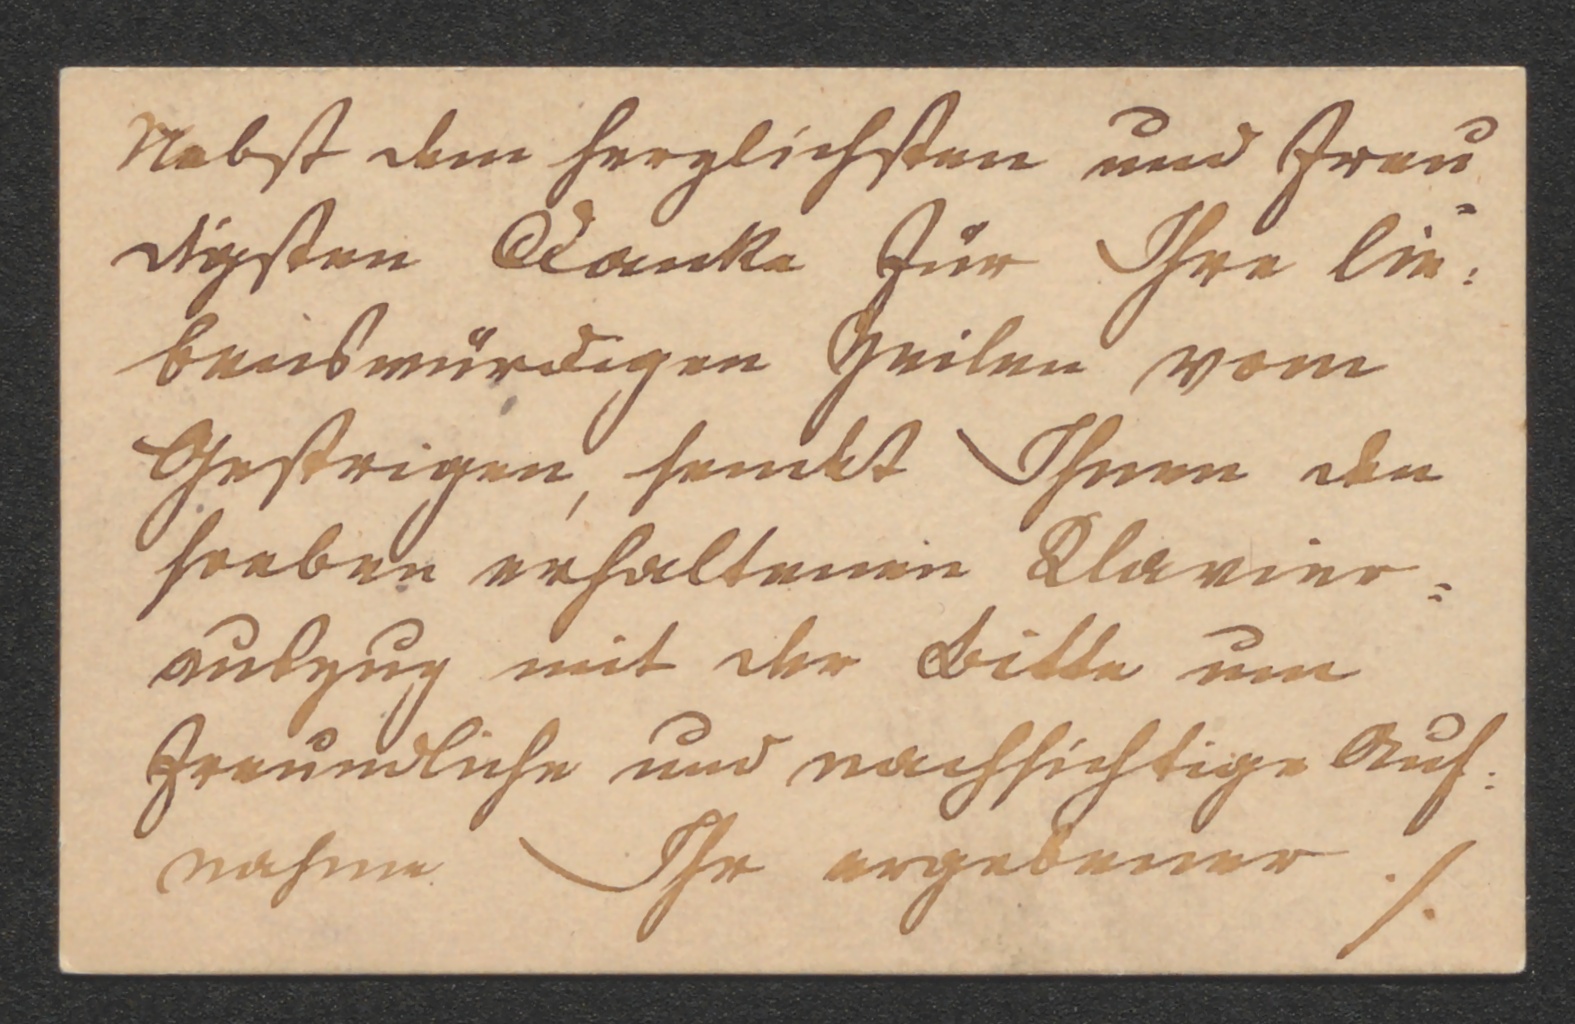 Nebst dem herzlichsten und freu-
digsten Danke für Ihre lie:
benswürdigen Zeilen vom
Gestrigen, sendet Ihnen den
soeben erhaltenen Klavier=
auszug mit der Bitte um
freundliche und nachsichtige Auf:
nahme Ihr ergebener ./.